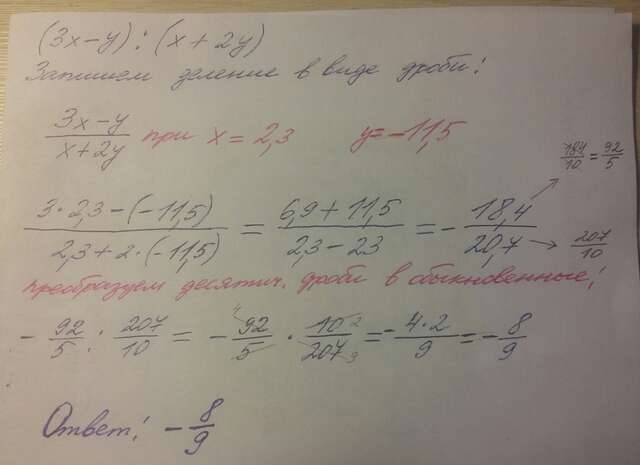 (3x-y) : (x+2y)
Запишем деление в виде дроби:
\frac{3x-y}{x+2y} при x = 2,3 y = -11,5
\frac{3 \cdot 2,3 - (-11,5)}{2,3 + 2 \cdot (-11,5)} = \frac{6,9 + 11,5}{2,3 - 23} = -\frac{18,4}{20,7}
\frac{184}{10} = \frac{92}{5}
\frac{207}{10}
преобразуем десятич. дроби в обыкновенные:
-\frac{92}{5} : \frac{207}{10} = -\frac{92}{5} \cdot \frac{10}{207} = -\frac{4 \cdot 2}{9} = -\frac{8}{9}
Ответ: -\frac{8}{9}